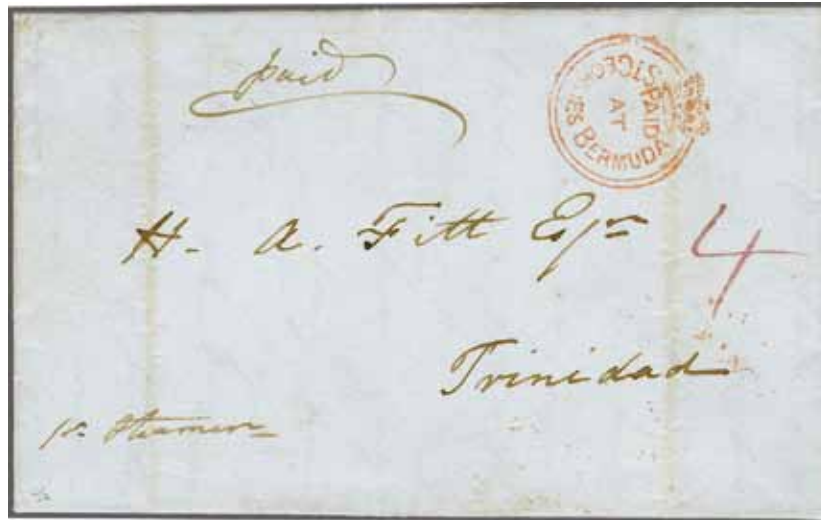 paid
PAID AT ST GEORGES BERMUDA
H. A. Fitt Esqr 4
Trinidad
pr. Steamer